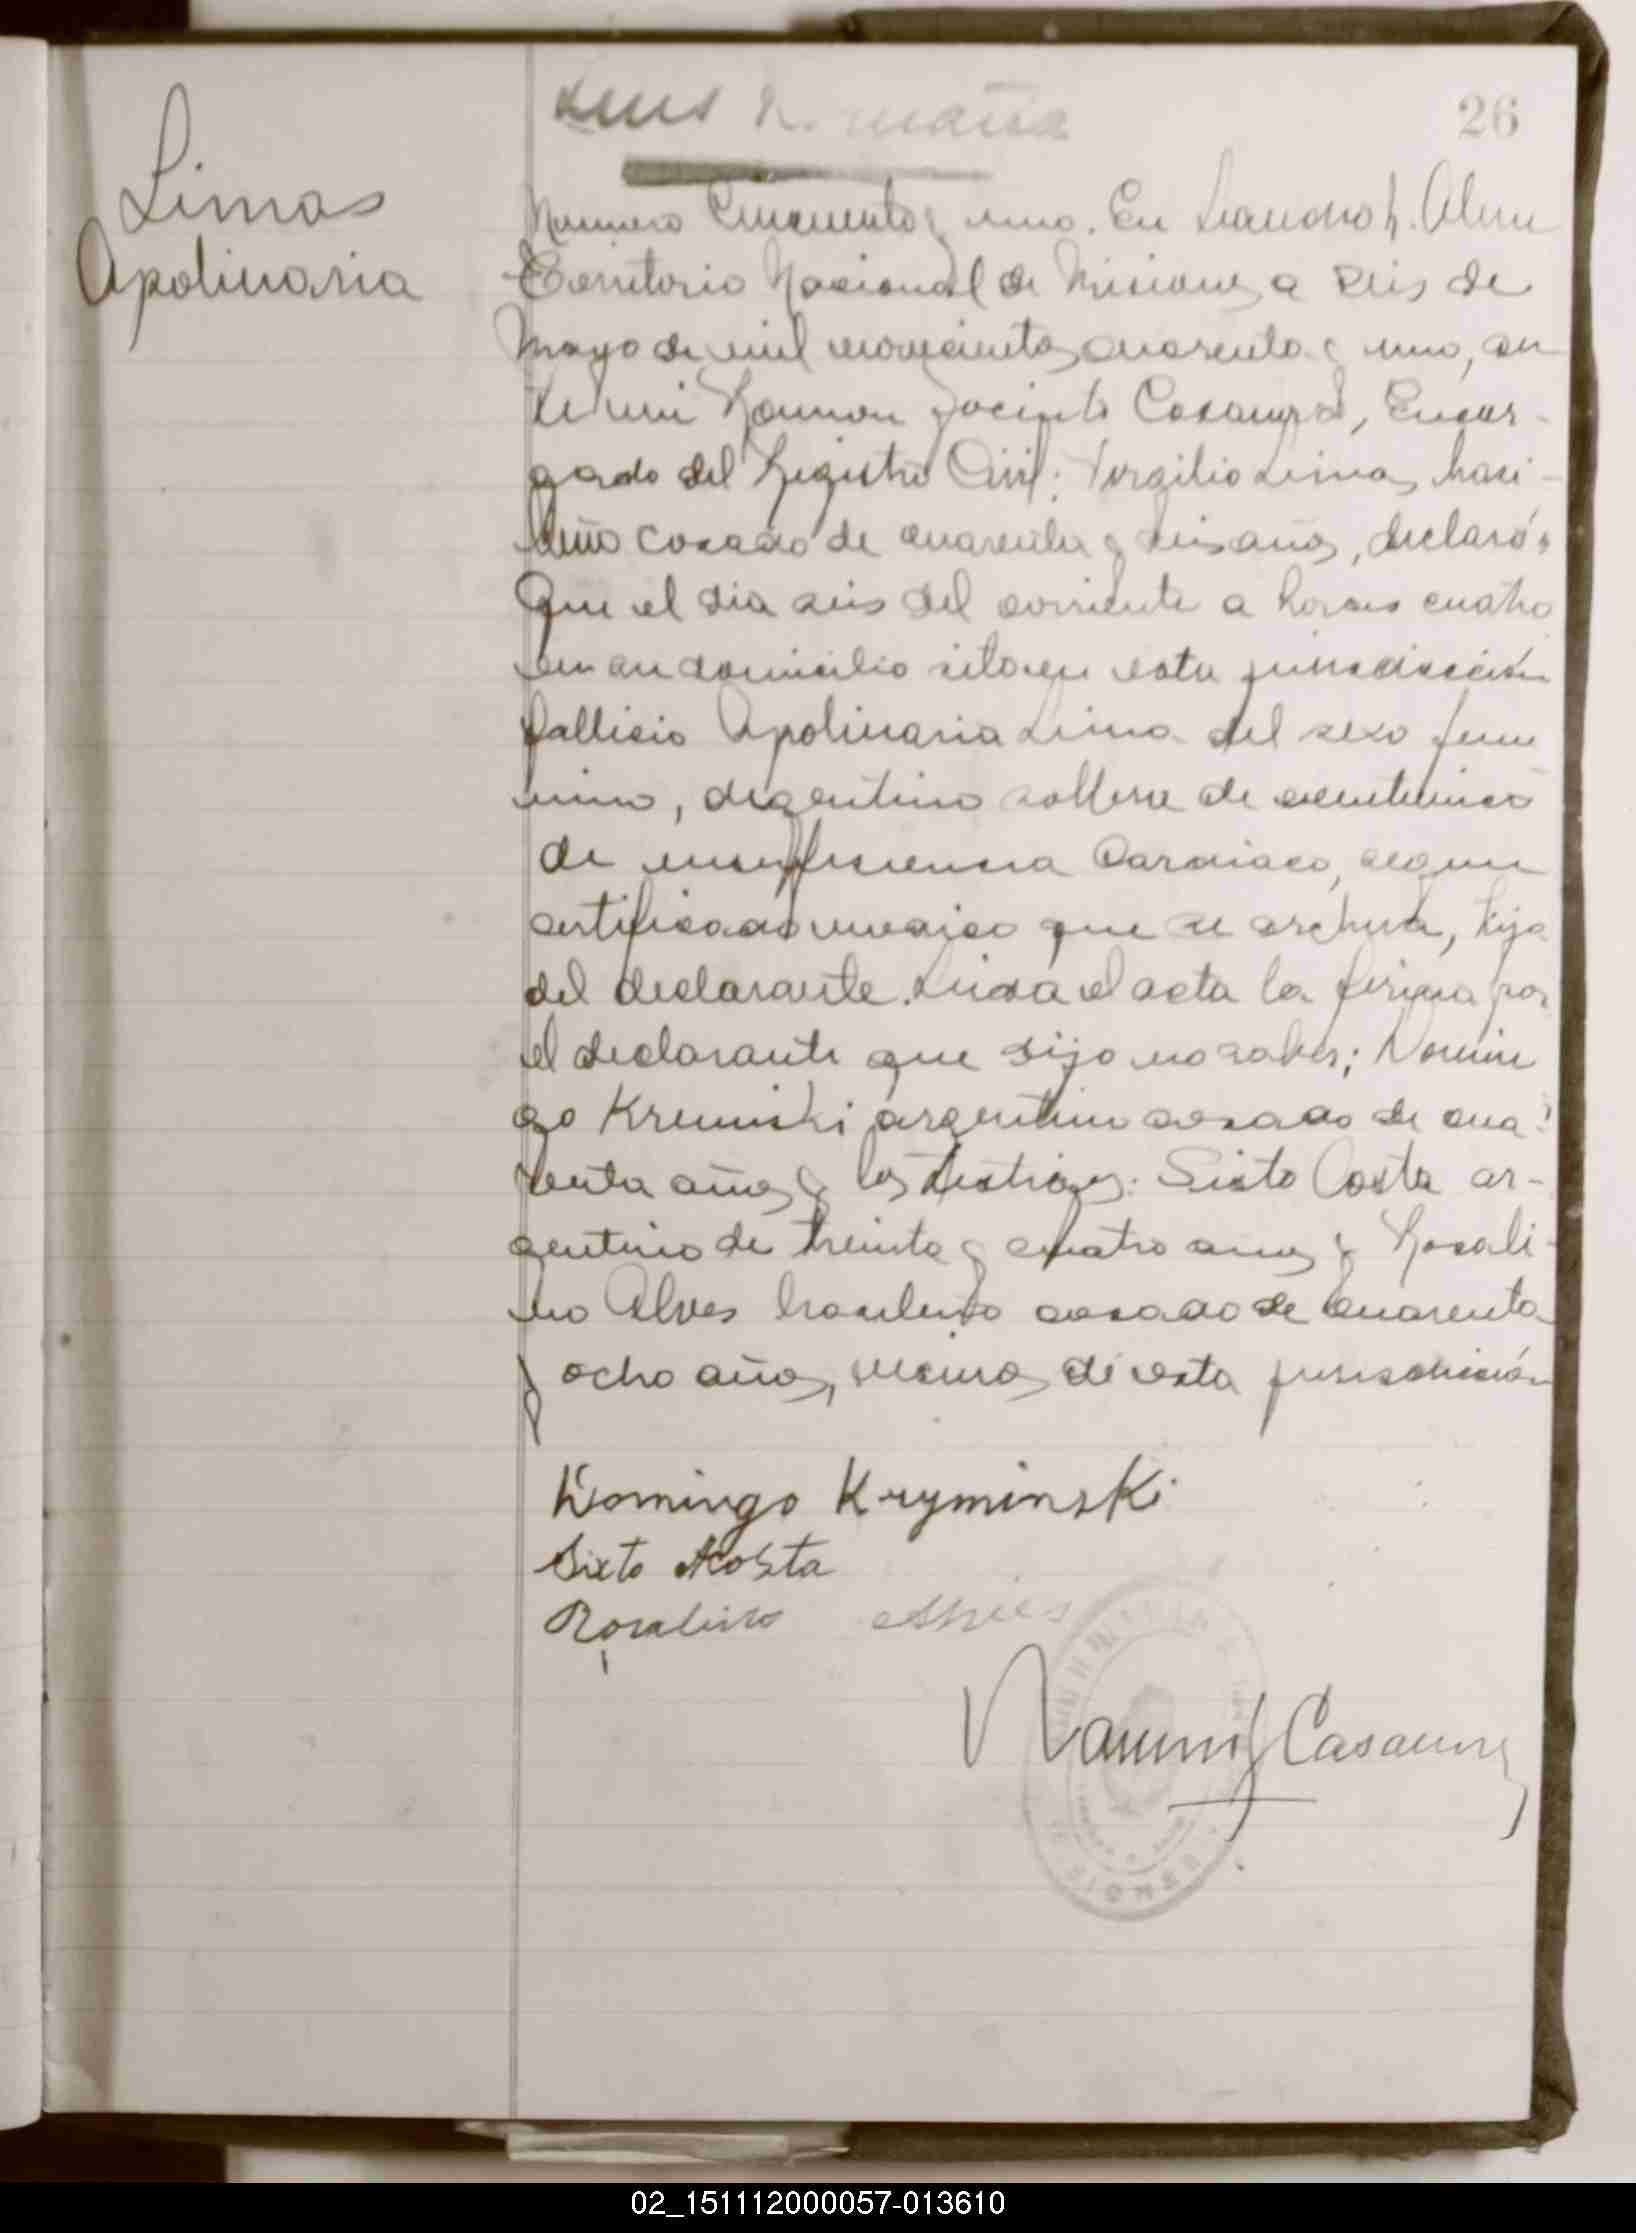 26
Limas
Apolinaria
Numero Cincuenta y uno. En Leandro N. Alem
Territorio Nacional de Misiones a seis de
Mayo de mil novecientos cuarenta y uno, an
te mi Ramon Jacinto Casaura, Encar-
gado del Registro Civil: Virgilio Limas, brasi-
leño casado de cuarenta y seis años, declaró:
Que el dia seis del corriente a horas cuatro
en su domicilio sito en esta jurisdiccion
fallecio Apolinaria Lima del sexo feme
nino, argentina soltera de
de insuficiencia Cardiaca, segun
certificado medico que se archiva, hija
del declarante. Leida el acta la firma por
el declarante que dijo no saber; Domin
go Kreminski argentino casado de cua
renta años y los testigos: Sixto Costa ar-
gentino de treinta y cuatro años y Rosali-
no Alves brasileño casado de cuarenta
y ocho años, vecinos de esta jurisdicción
Domingo Kryminski
Sixto Acosta
Rosalino
Ramon J Casaura
02_151112000057-013610